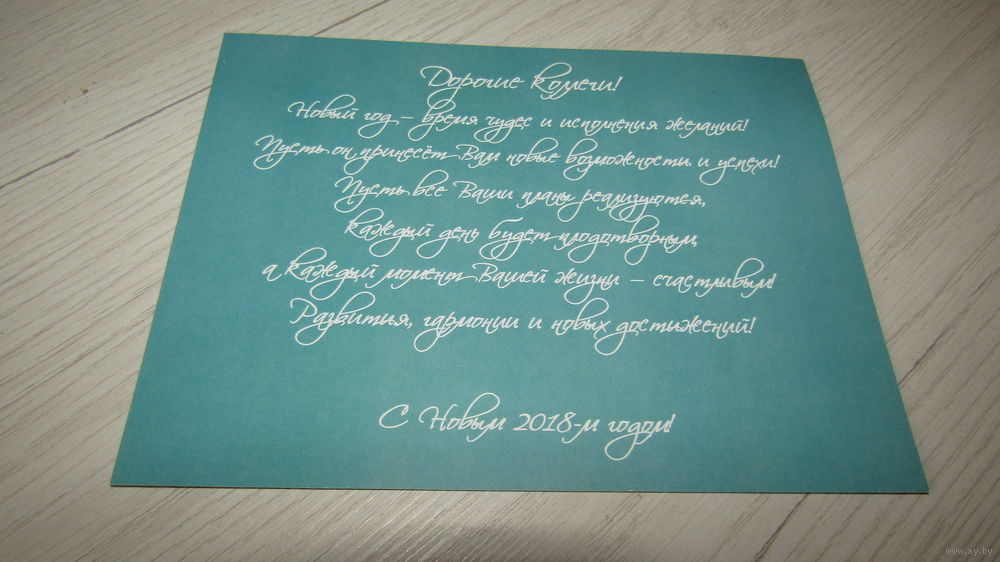 Дорогие коллеги!
Новый год – время чудес и исполнения желаний!
Пусть он принесёт Вам новые возможности и успехи!
Пусть все Ваши планы реализуются,
каждый день будет плодотворным,
а каждый момент Вашей жизни – счастливым!
Развития, гармонии и новых достижений!
С Новым 2018-м годом!
www.ay.by